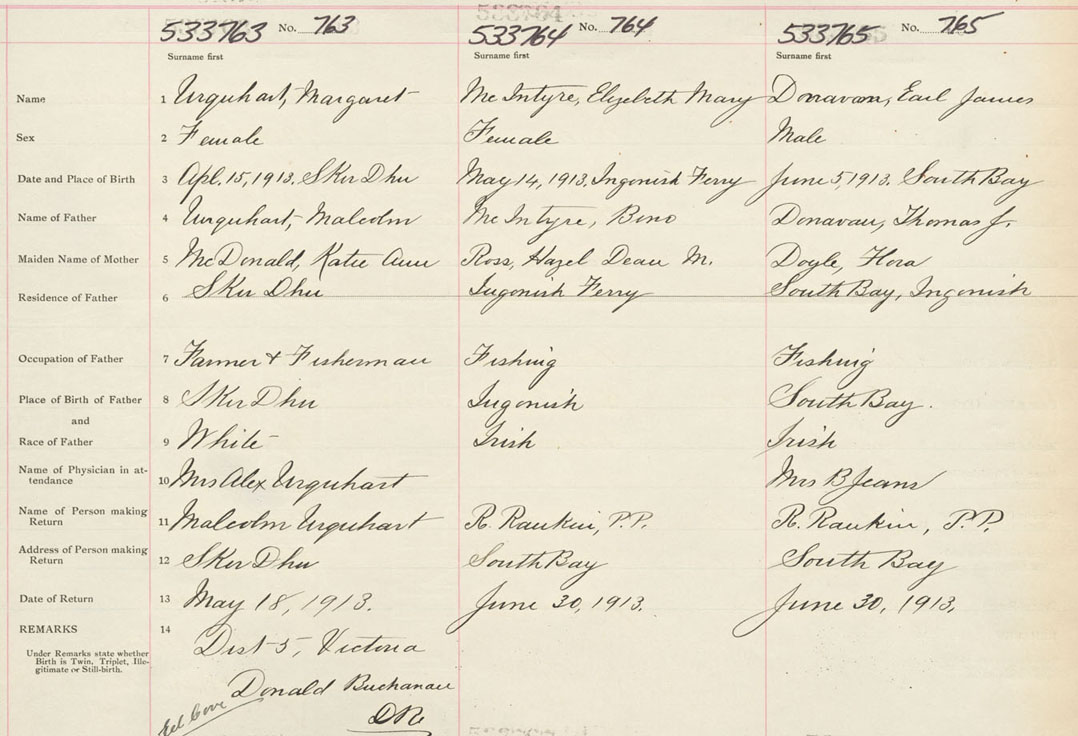 533763 No. 763 533764 No. 764 533765 No. 765
Surname first Surname first Surname first
Name 1 Urquhart, Margaret Mc Intyre, Elizebeth Mary Donavan, Earl James
Sex 2 Female Female Male
Date and Place of Birth 3 Apl. 15, 1913. Skir Dhu May 14, 1913. Ingonish Ferry June 5, 1913. South Bay
Name of Father 4 Urquhart, Malcolm Mc Intyre, Donavan, Thomas J.
Maiden Name of Mother 5 McDonald, Katie Ann Ross, Hazel Dean M. Doyle, Flora
Residence of Father 6 Skir Dhu Ingonish Ferry South Bay, Ingonish
Occupation of Father 7 Farmer & Fisherman Fishing Fishing
Place of Birth of Father 8 Skir Dhu Ingonish South Bay.
and
Race of Father 9 White Irish Irish
Name of Physician in at-
tendance 10 Mrs Alex Urquhart Mrs B Jeans
Name of Person making
Return 11 Malcolm Urquhart R. Rankin, P.P. R. Rankin, P.P.
Address of Person making
Return 12 Skir Dhu South Bay South Bay
Date of Return 13 May 18, 1913. June 30, 1913. June 30, 1913.
REMARKS 14
Dist 5, Victoria
Under Remarks state whether
Birth is Twin, Triplet, Ille-
gitimate or Still-birth.
Donald Buchanan
Eel Cove
DR